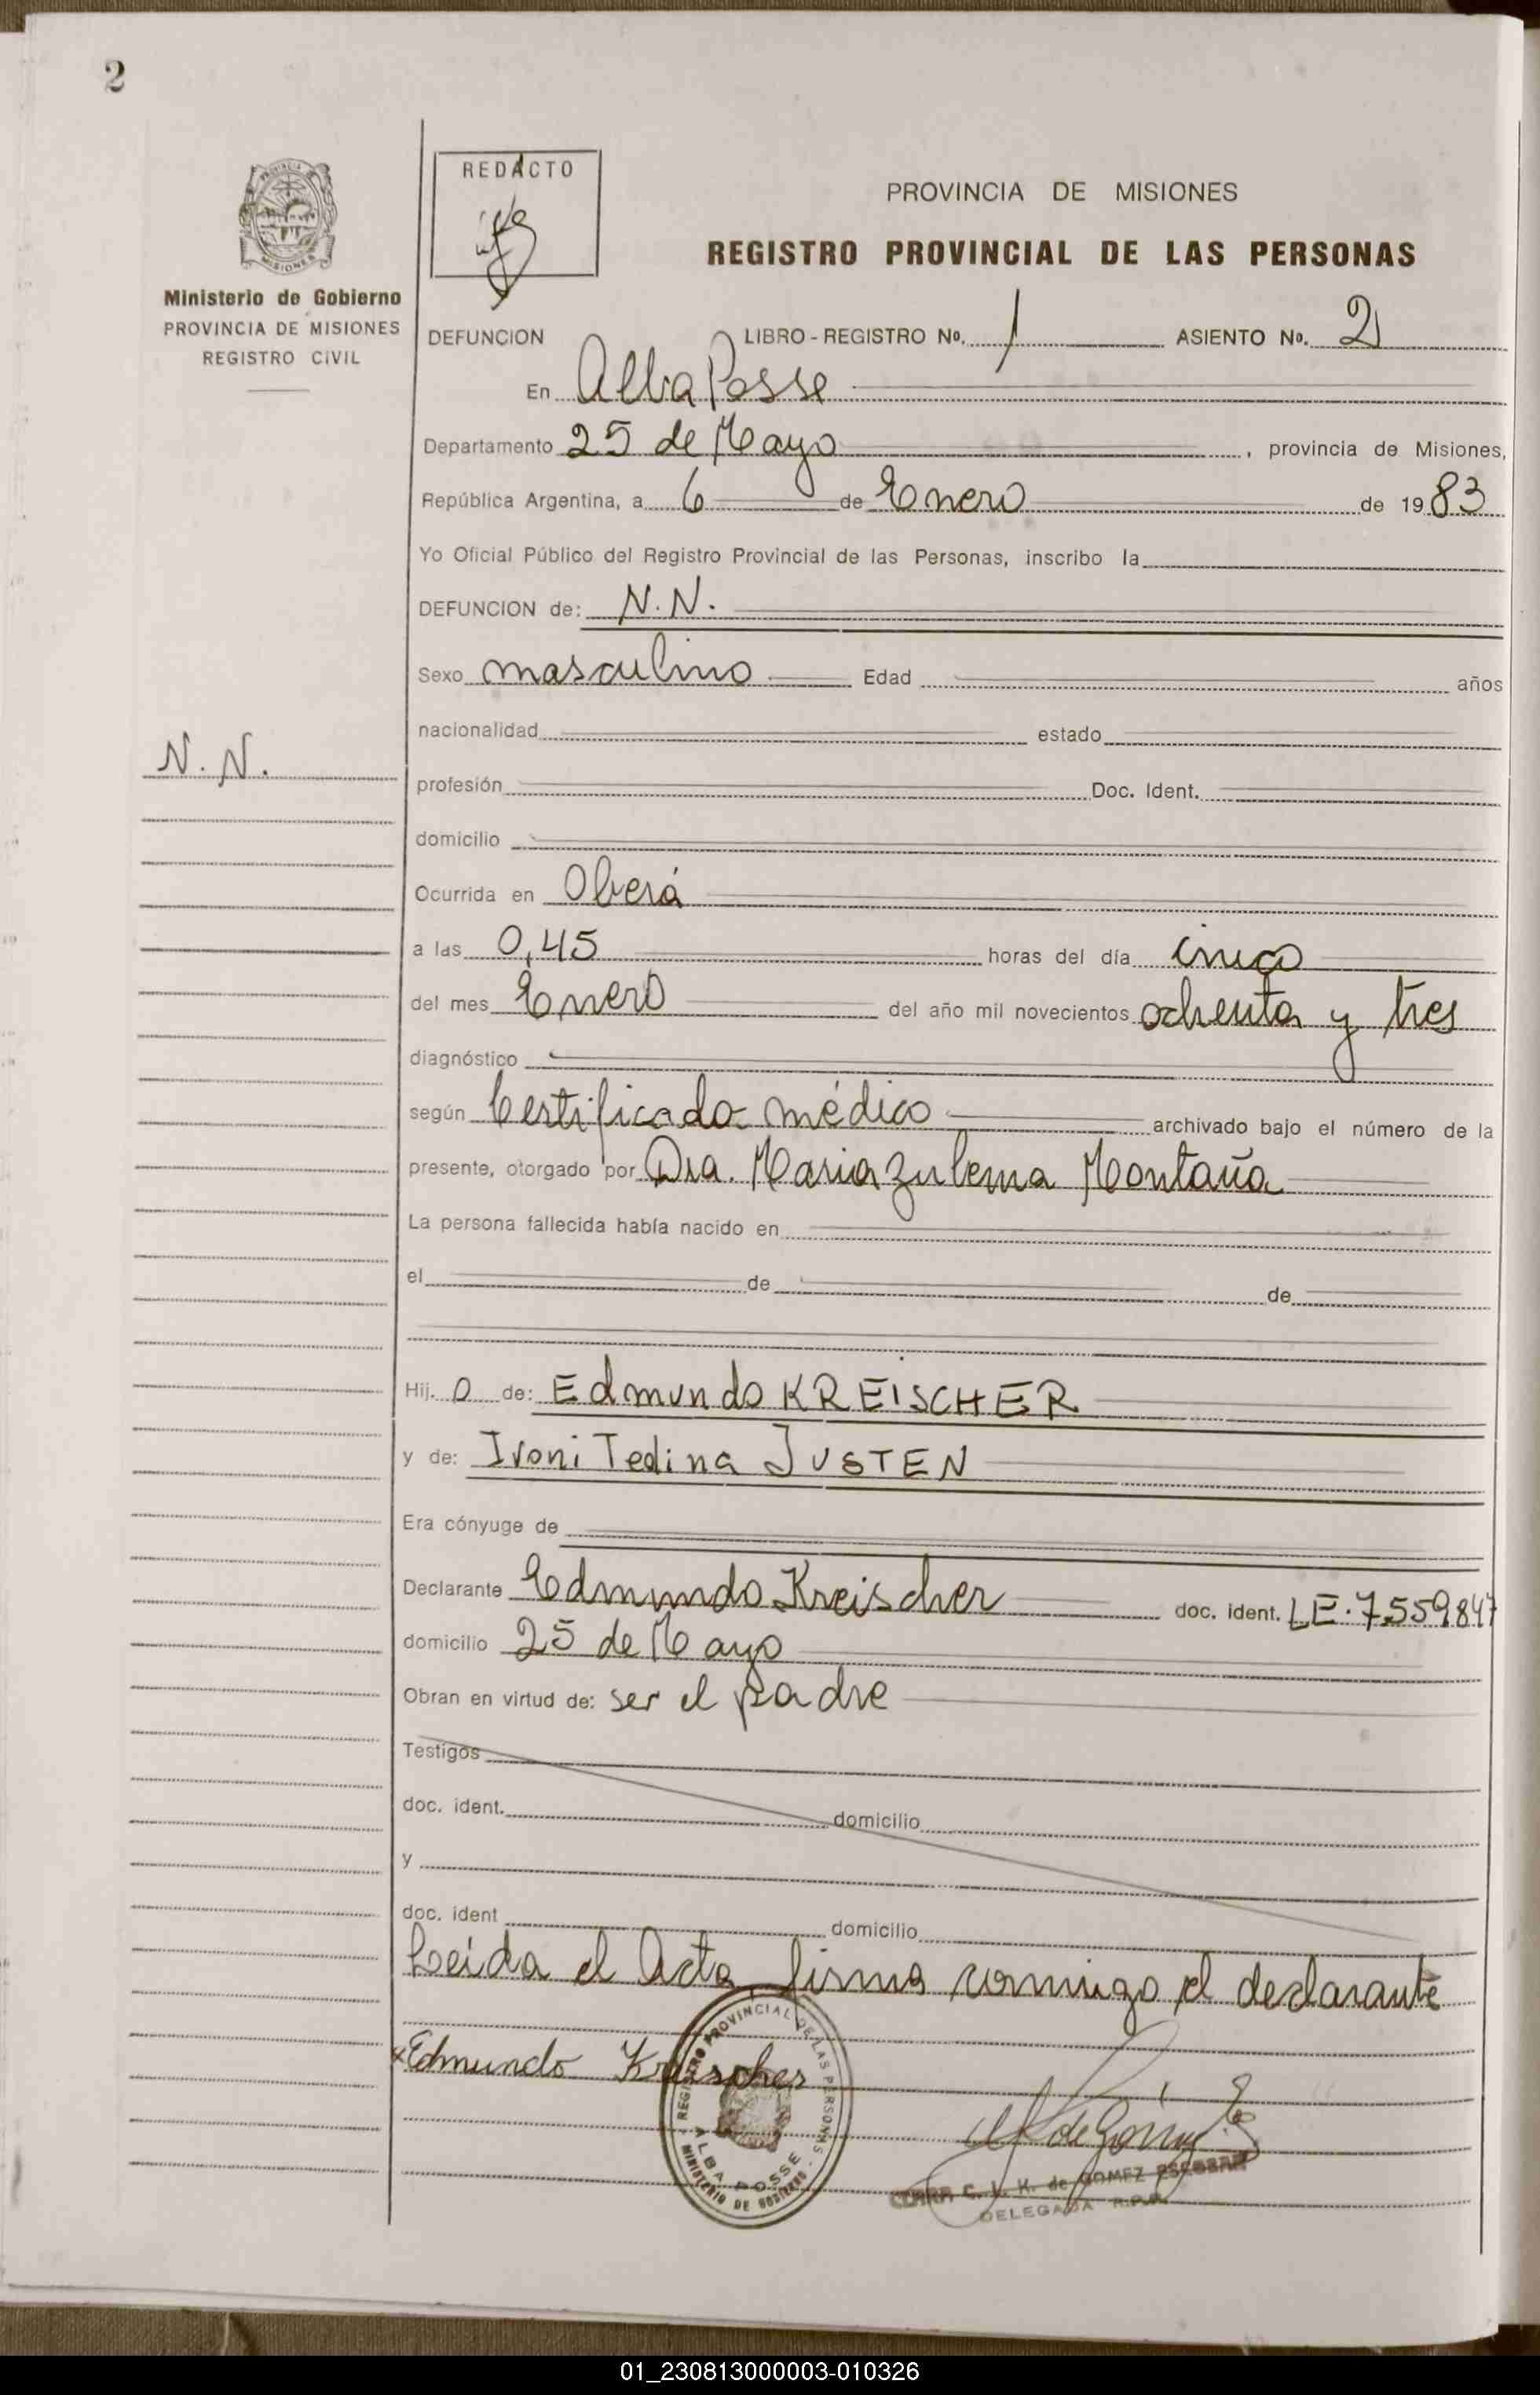 2
REDACTO
PROVINCIA DE MISIONES
REGISTRO PROVINCIAL DE LAS PERSONAS
Ministerio de Gobierno
PROVINCIA DE MISIONES
REGISTRO CIVIL
DEFUNCION LIBRO - REGISTRO No. 1 ASIENTO No. 2
En Alba Posse
Departamento 25 de Mayo, provincia de Misiones,
República Argentina, a 6 de Enero de 1983
Yo Oficial Público del Registro Provincial de las Personas, inscribo la
DEFUNCION de: N.N.
Sexo masculino Edad años
nacionalidad estado
N. N.
profesión Doc. Ident.
domicilio
Ocurrida en Oberá
a las 0,45 horas del día cinco
del mes Enero del año mil novecientos ochenta y tres
diagnóstico
según Certificado médico archivado bajo el número de la
presente, otorgado por Dra. Maria Zulema Montaña
La persona fallecida había nacido en
el de de
Hij o de: Edmundo KREISCHER
y de: Ivoni Tedina JUSTEN
Era cónyuge de
Declarante Edmundo Kreischer doc. ident. LE. 7.559.847
domicilio 25 de Mayo
Obran en virtud de: ser el padre
Testigos
doc. ident. domicilio
y
doc. ident domicilio
Leida el Acta firma conmigo el declarante
Edmundo Kreischer
REGISTRO PROVINCIAL DE LAS PERSONAS
ALBA POSSE
MINISTERIO DE GOBIERNO
de GOMEZ ESCOBAR
DELEGADA R.P.P.
01_230813000003-010326